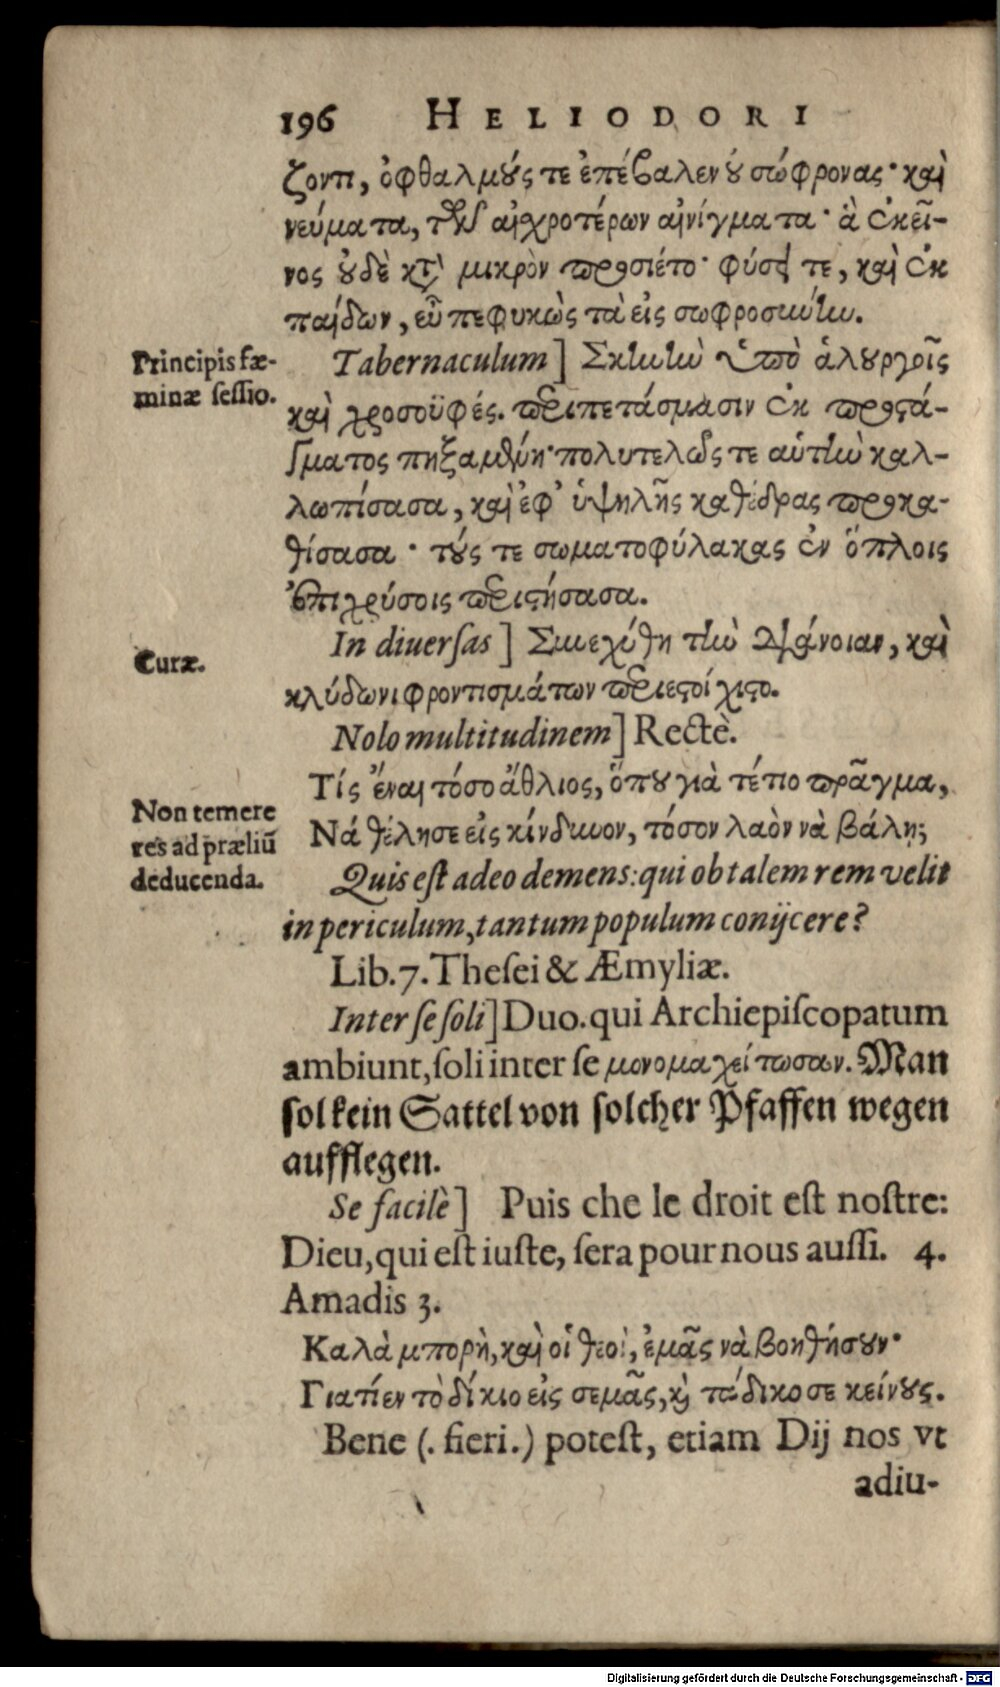 196 HELIODORI
ζοντι, ὀφθαλμούς τε ἐπέβαλεν οὐ σώφρονας· καὶ
νεύματα, τῶν αἰχροτέρων αἰνίγματα· ἃ ἐκεῖ-
νος οὐδὲ κτ̀ μικρὸν προσιέτο· φύσει τε, καὶ ἐκ
παίδων, εὖ πεφυκὼς τὰ εἰς σωφροσύνην.
Principis fæ-
minæ sessio.
Tabernaculum] Σκηνὴν ὑπὸ ἁλουργοῖς
καὶ χροσοϋφές. περιπετάσμασιν ἐκ προςά-
γματος πηξαμένη· πολυτελῶς τε αὑτὴν καλ-
λωπίσασα, καὶ ἐφ' ὑψηλῆς καθέδρας προκα-
θίσασα· τούς τε σωματοφύλακας ἐν ὅπλοις
ἐπιχρύσοις περιςήσασα.
Curæ.
In diuersas] Συνεχύθη τὴν διάνοιαν, καὶ
κλύδωνι φροντισμάτων περιεςοίχιςο.
Nolo multitudinem] Rectè.
Non temere
res ad præliū
deducenda.
Τίς ἔναι τόσο ἄθλιος, ὅπου γιὰ τέπο πρᾶγμα,
Νά θέλησε εἰς κίνδυνον, τόσον λαὸν νὰ βάλῃ;
Quis est adeo demens: qui ob talem rem velit
in periculum, tantum populum conijcere?
Lib. 7. Thesei & Æmyliæ.
Inter se soli] Duo. qui Archiepiscopatum
ambiunt, soli inter se μονομαχείτωσαν. Man
sol kein Sattel von solcher Pfaffen wegen
aufflegen.
Se facilè] Puis che le droit est nostre:
Dieu, qui est iuste, sera pour nous aussi. 4.
Amadis 3.
Καλὰ μπορὴ, καὶ οἱ θεοὶ, ἐμᾶς νὰ βοηθήσουν·
Γιατίεν τὸ δίκιο εἰς σεμᾶς, κỳ τάδικο σε κείνους.
Bene (. fieri.) potest, etiam Dij nos vt
adiu-
Digitalisierung gefördert durch die Deutsche Forschungsgemeinschaft - DFG